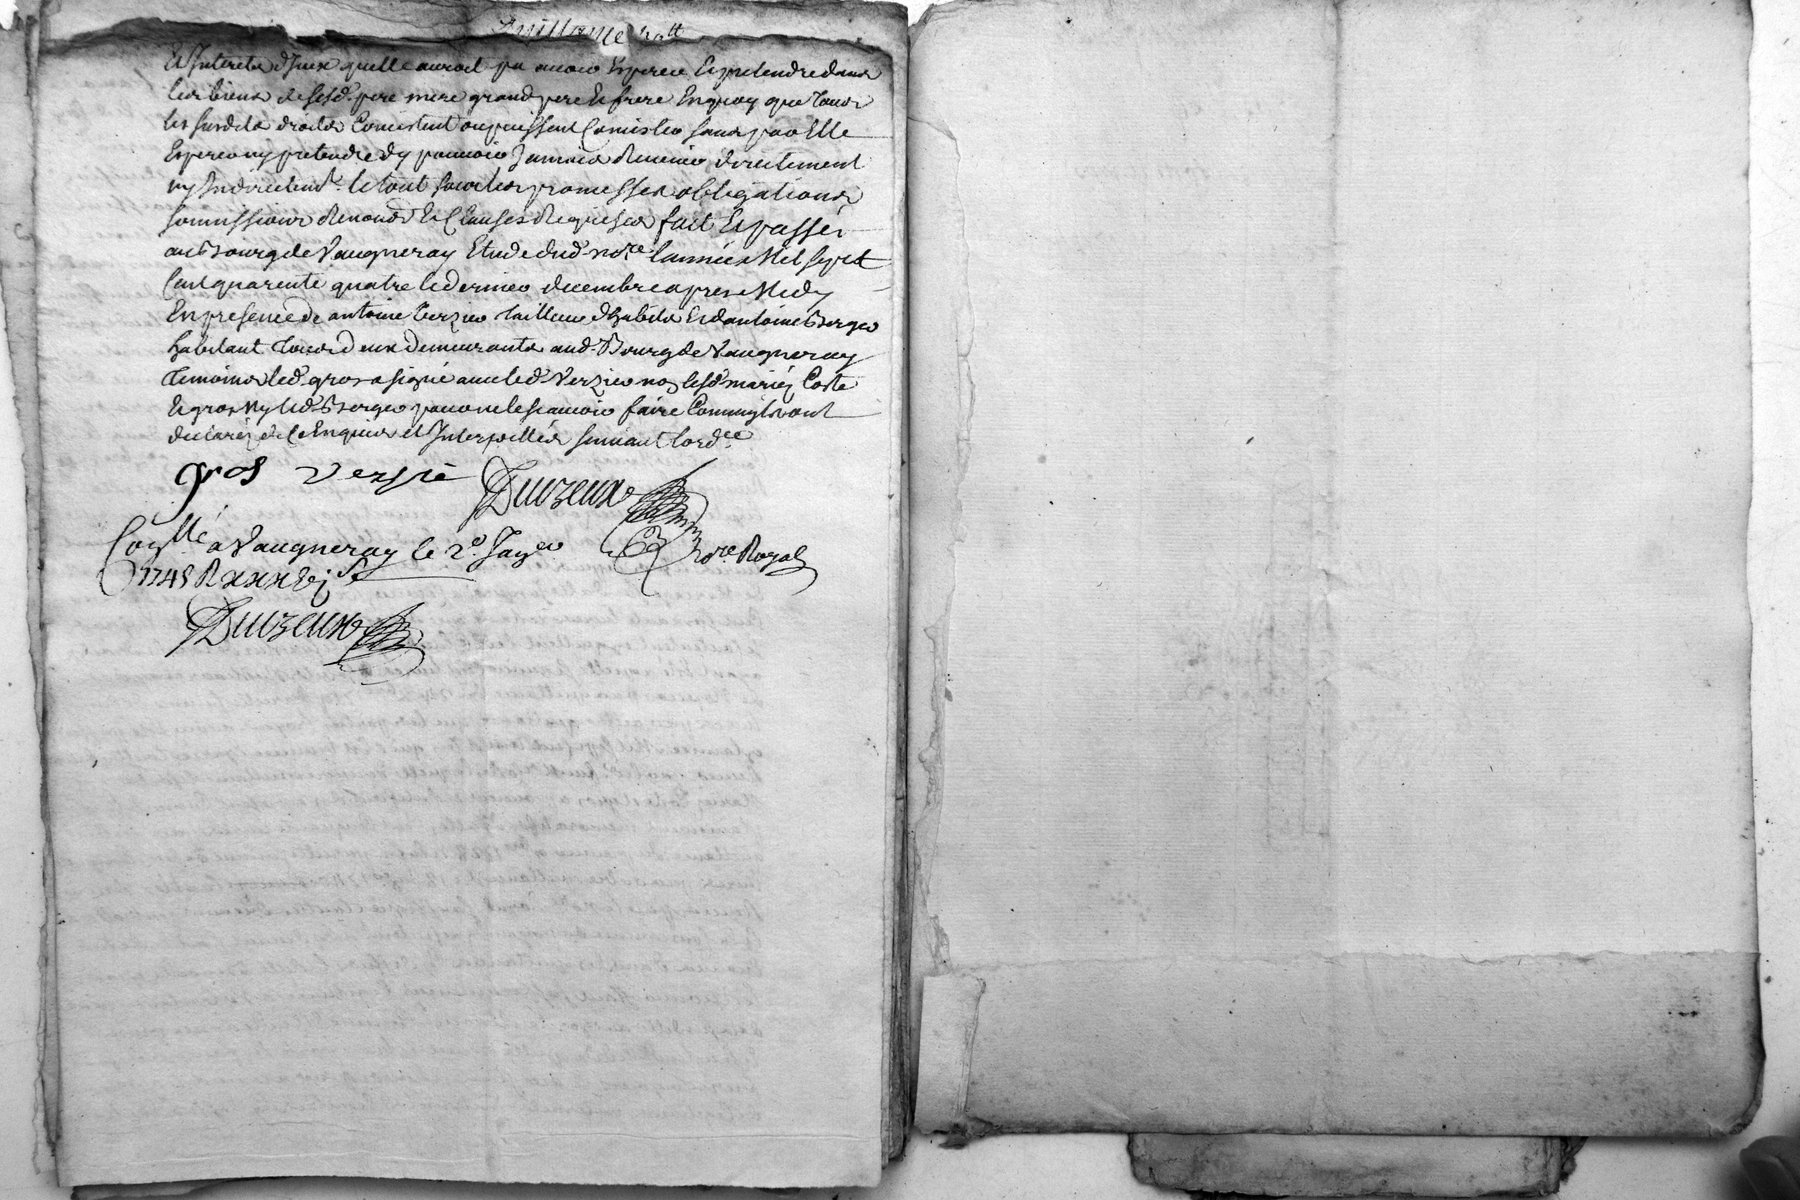 Et Interets d'Iceux quelle auroit pu avoir Esperer Et pretendre dans
les biens de sesd. pere mere grand pere Et frere En quoy que tous
les susdits droits Consistent ou puissent Consister sans par Elle
Esperer ny pretendre dy pouvoir Jamais Revenir directement
ny Indirectemt. le tout sous les promesses obligations
soumissions Renonds Et Clauses Requises fait Et passé
au Bourg de Vaugneray Etude dud. nore. l'année Mil sept
Cent quarente quatre le dernier decembre apres Midy
En presence de antoine Verzier tailleur d'habits Et d'antoine Berger
habitant tous deux demeurants aud. Bourg de Vaugneray
temoins led. gros a signé avec led. Verzier non lesd. mariez Coste
Et gros Ny led. Berger pour ne le scavoir faire Comm'ils ont
declaréz de Ce Enquis et Interpellés suivant l'ordce
gros verziè Duizeux
nore. Royal
Conllé a Vaugneray le 2e. Janer
1745 R
Duizeux